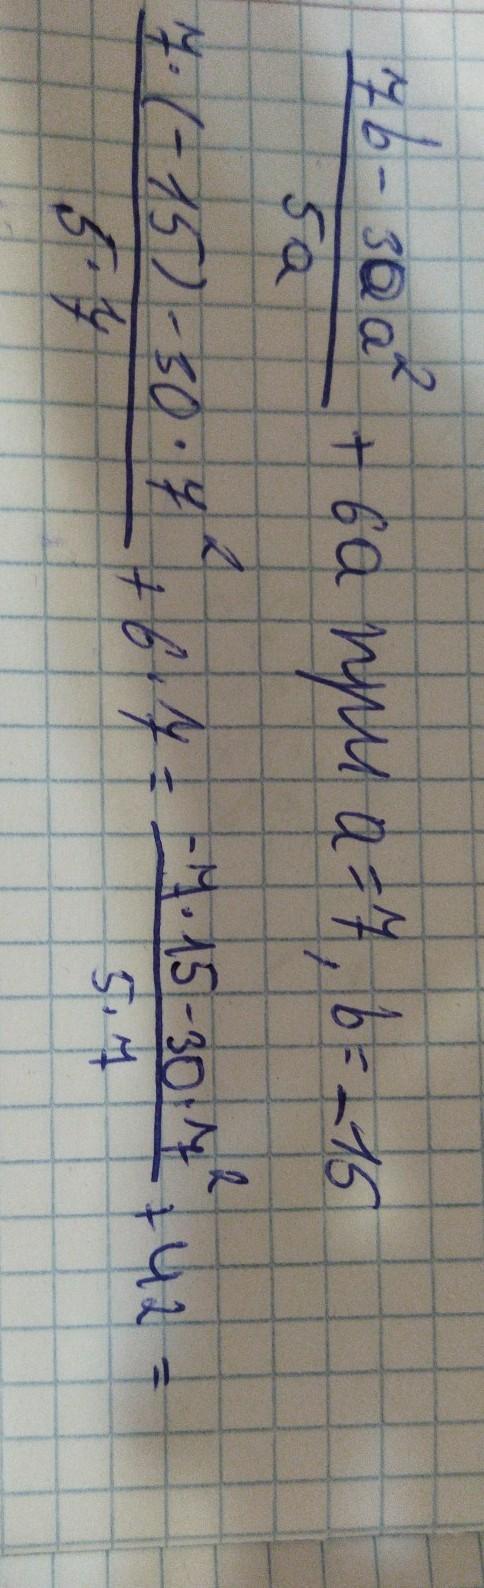 7b - 30a² / 5a + 6a при a=7, b=-15
7·(-15)-30·7² / 5·7 + 6·7 = -7·15-30·7² / 5·7 + 42 =